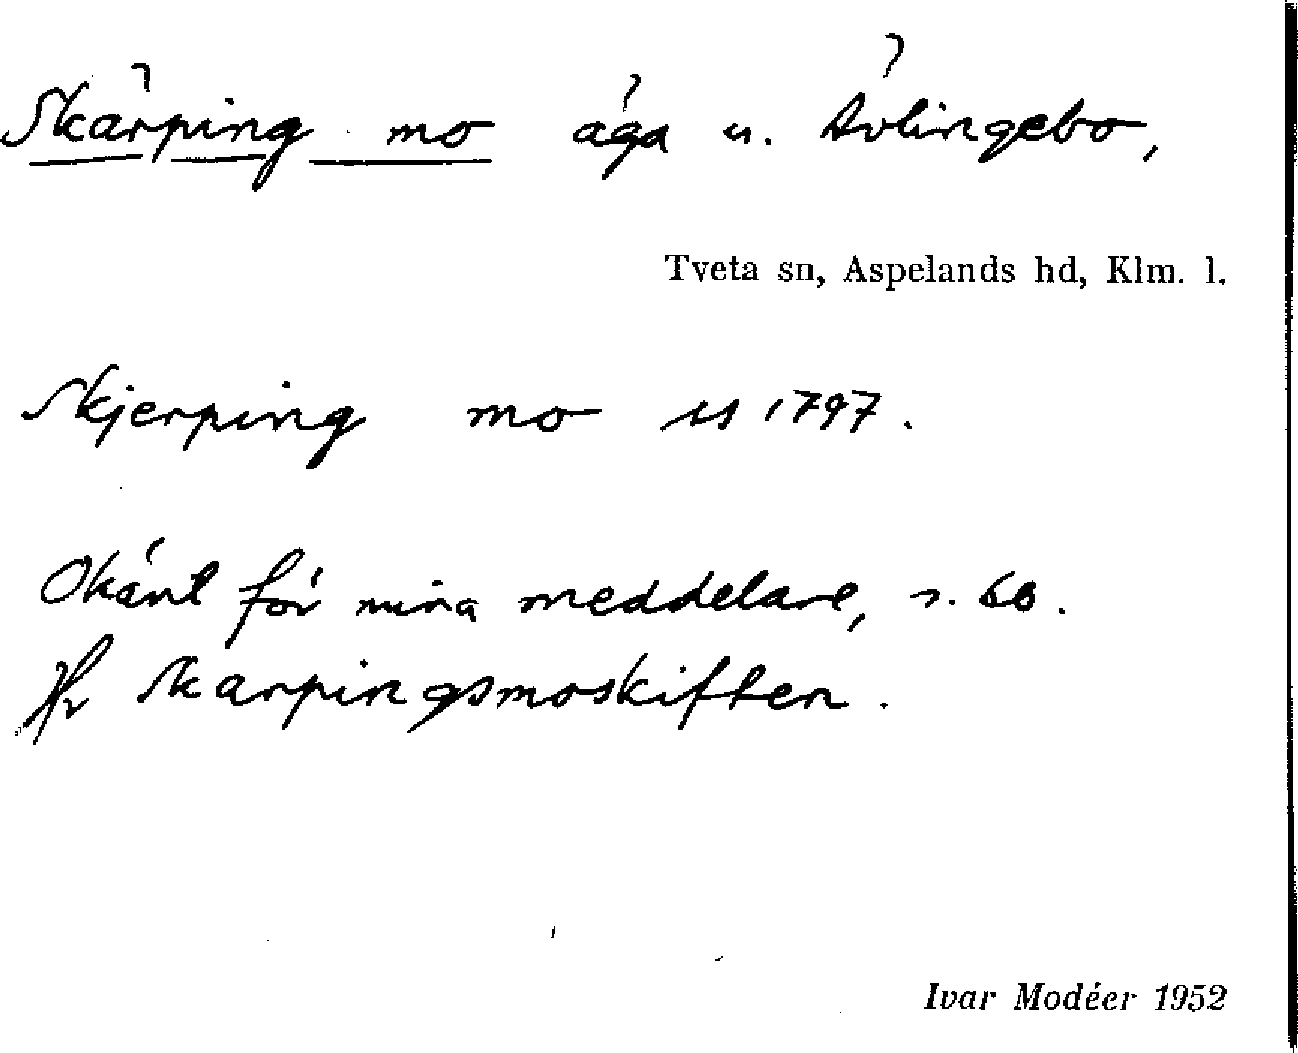 Skärping mo äga u. Ävlingebo,
Tveta sn, Aspelands hd, Klm. l.
Skjerping mo LS 1797.
Okänt för mina meddelare, s. 60.
Jfr Skärpingsmoskiften.
Ivar Modéer 1952